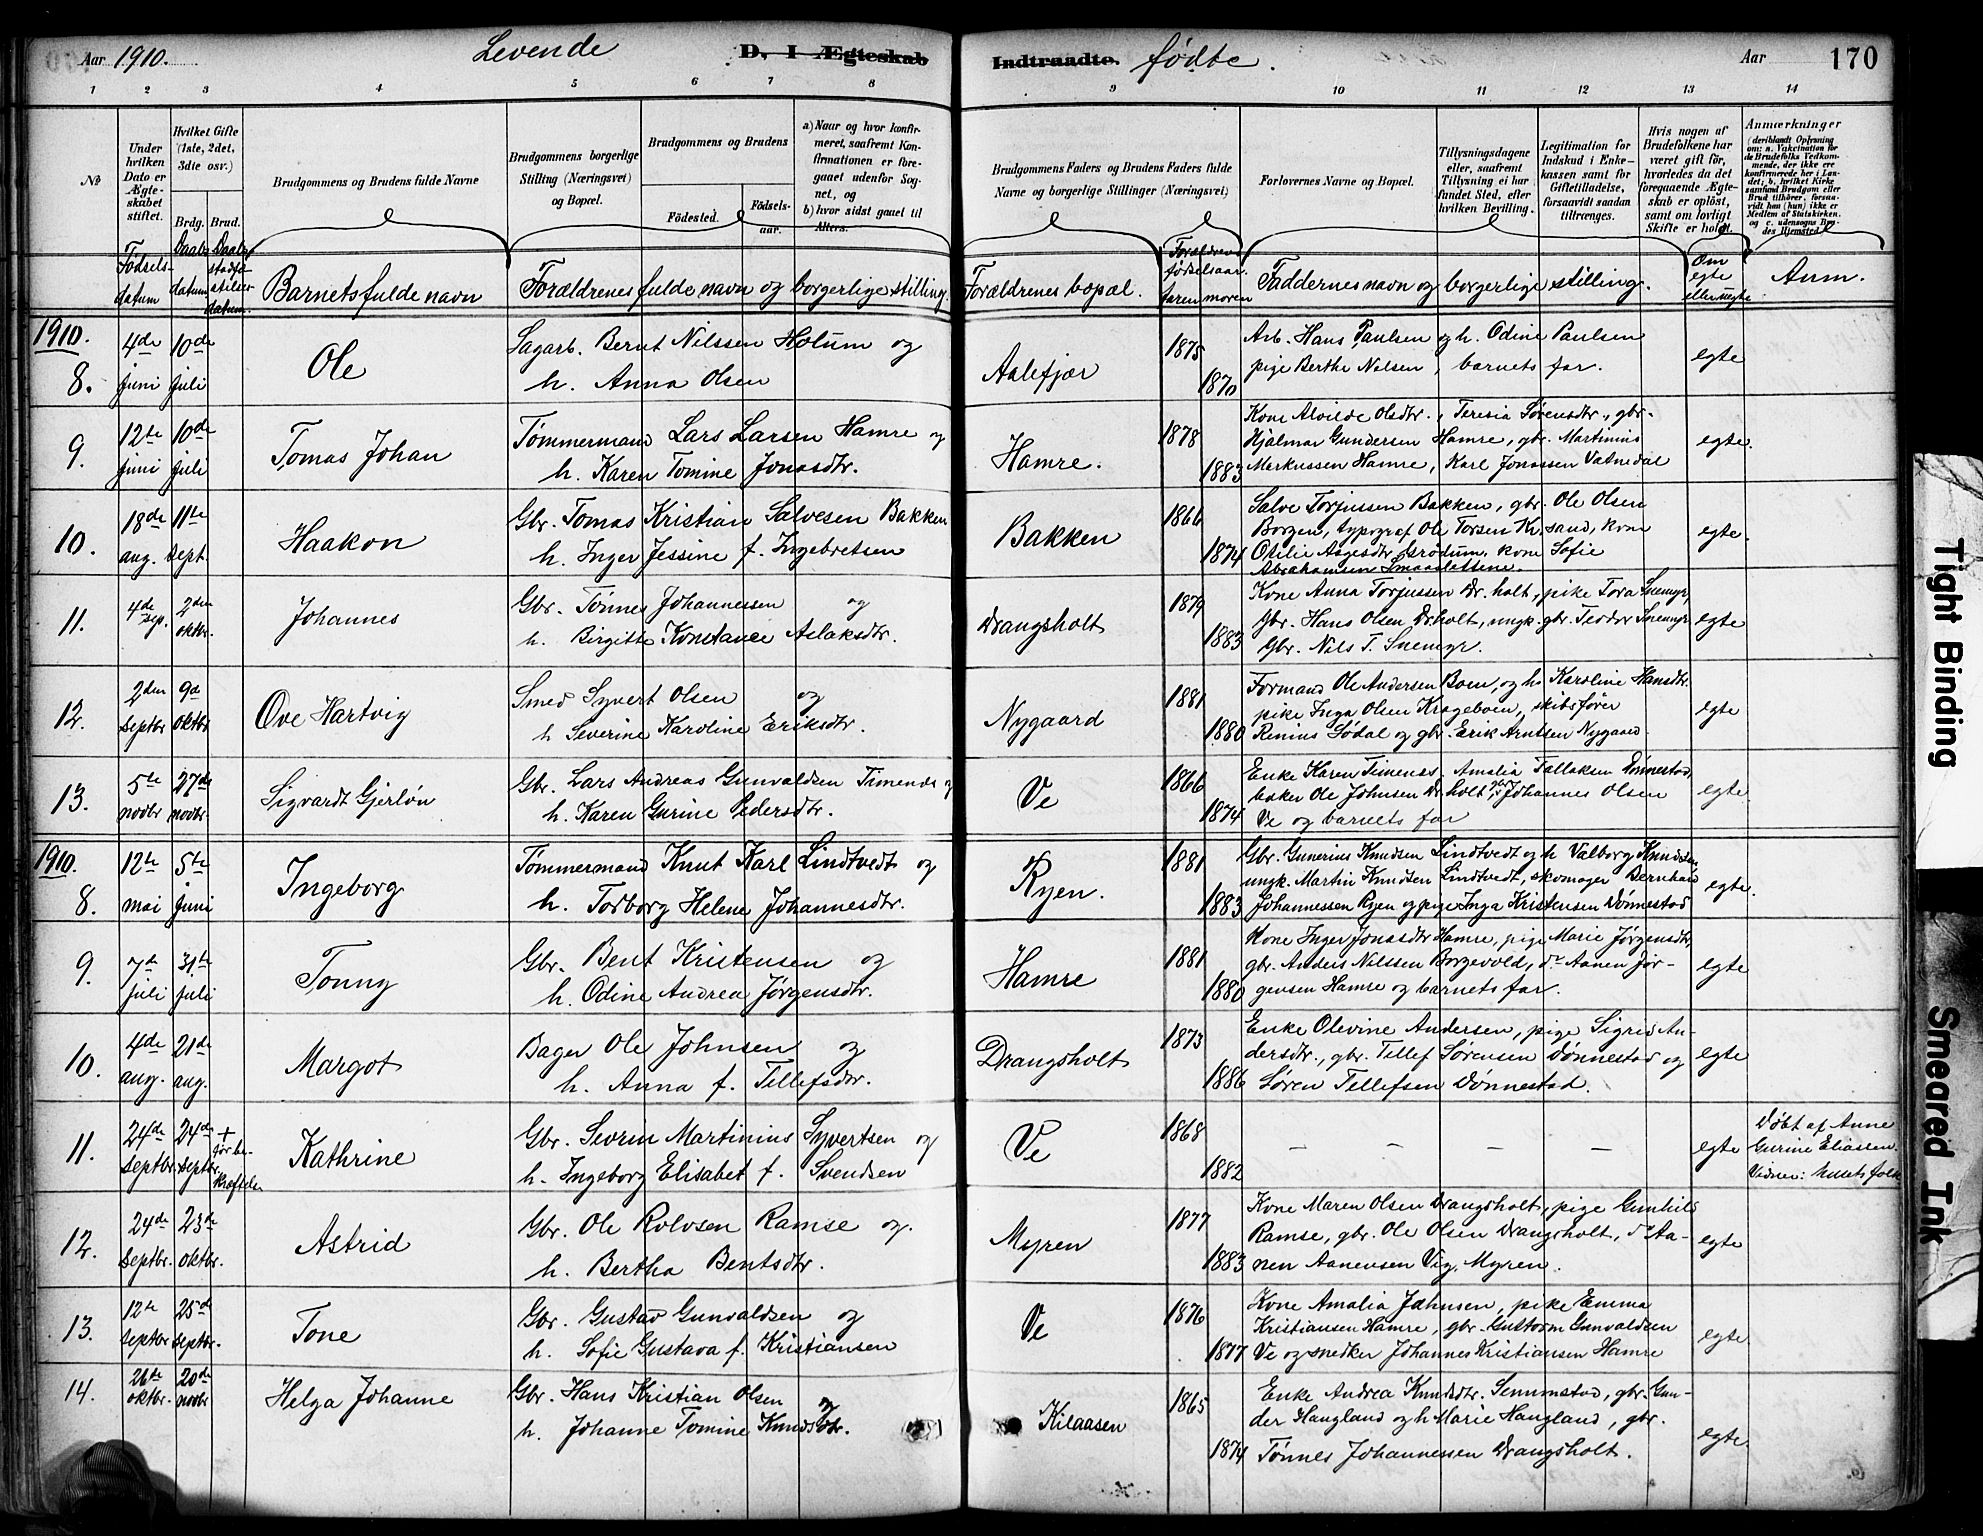 Aar 1910.
Levende
D. I Ægteskab
Indtraadte.
fødte.
Aar
170
1 2 3 4 5 6 7 8 9 10 11 12 13 14
№
Under hvilken Dato er Ægteskabet stiftet.
Hvilket Gifte (1ste, 2det, 3die osv.)
Brdg. Brud.
Brudgommens og Brudens fulde Navne
Brudgommens borgerlige Stilling (Næringsvei) og Bopæl.
Brudgommens og Brudens
Fødested.
Fødselsaar.
a) Naar og hvor konfirmeret, saafremt Konfirmationen er foregaaet udenfor Sognet, og
b) hvor sidst gaaet til Alters.
Brudgommens Faders og Brudens Faders fulde Navne og borgerlige Stillinger (Næringsvei)
Forlovernes Navne og Bopæl.
Tillysningsdagene eller, saafremt Tillysning ei har fundet Sted, efter hvilken Bevilling.
Legitimation for Indskud i Enkekassen samt for Giftetilladelse, forsaavidt saadan tiltrænges.
Hvis nogen af Brudefolkene har været gift før, hvorledes da det foregaaende Ægteskab er opløst, samt om lovligt Skifte er holdt.
Anmærkninger
(deriblandt Oplysning om: a. Vakcination for de Brudefolks Vedkommende, der ikke ere konfirmerede her i Landet; b. hvilket Kirkesamfund Brudgom eller Brud tilhører, forsaavidt han (hun) ikke er Medlem af Statskirken, og c. udensogns Brudes Hjemsted.)
Fødselsdatum
Daabsdatum
Daabsstadfæstelsesdatum
Barnets fulde navn
Forældrenes fulde navn og borgerlige stilling.
Forældrenes bopæl.
Forældrenes fødselsaar.
faren moren
Faddernes navn og borgerlige stilling.
Om egte eller uegte
Anm.
1910.
8. 4de juni 10de juli Ole
Sagarb. Bernt Nilssen Holum og
h. Anna Olsen
Aalefjær 1875 1870
Arb. Hans Paulsen og h. Odine Paulsen
pige Berthe Nilsen, barnets far.
egte
9. 12te juni 10de juli Tomas Johan
Tømmermand Lars Larsen Hamre og
h. Karen Tomine Jonasdtr.
Hamre. 1878 1883
Kone Alvilde Olsdtr., Teresia Sørensdtr., gbr.
Hjalmar Gundersen Hamre, gbr. Martinius
Markussen Hamre, Karl Jonassen Vatnedal
egte.
10. 18de aug. 11te sept. Haakon
Gbr. Tomas Kristian Salvesen Bakken
h. Inger Jessine f. Ingebretsen
Bakken 1866 1874
Salve Torjussen Bakken, gbr. Ole Olsen
Borgen, typograf Ole Torsen Kr.sand, kone
Otilie Aagesdtr. Frødum, kone Sofie
Abrahamsen Smaaslettene.
egte.
11. 4de sep. 2den oktbr. Johannes
Gbr. Tønnes Johannessen og
h. Birgitte Konstance Aslaksdtr.
Drangsholt 1879 1883
Kone Anna Torjussen Dr.holt, pike Tora Snemyr,
Gbr. Hans Olsen Dr.holt, ungk. gbr. Teodor Snemyr
Gbr. Nils T. Snemyr.
egte
12. 2den Septbr 9de oktbr Ove Hartvig
Smed Syvert Olsen og
h Severine Karoline Eriksdtr.
Nygaard 1881 1880
Formand Ole Andersen Boen, og h. Karoline Hansdtr.
pike Inga Olsen Krageboen, skibsfører
Rinius Sødal og gbr. Erik Arntsen Nygaard.
egte
13. 5te novbr 27de novbr. Sigvardt Gjerløv
Gbr. Lars Andreas Gunvaldsen Timenes og
h. Karen Gurine Pedersdtr.
Ve 1866 1874
Enke Karen Timenes, Amalia Tallaksen Dønnestad,
baker Ole Johnsen Dr.holt, gbr. Johannes Olsen
Ve og barnets far
egte.
1910.
8. 12te mai 5te juni Ingeborg
Tømmermand Knut Karl Lindtvedt og
h. Torborg Helene Johannesdtr.
Ryen. 1881 1883
Gbr. Gunerius Knudsen Lindtvedt og h Valborg Knudsen,
ungk. Martin Knudsen Lindtvedt, skomager Bernhard
Johannessen Ryen og pige Inga Kristensen Dønnestad
egte.
9. 7de juli 31te juli Tonny
Gbr. Bent Kristensen og
h. Odine Andrea Jørgensdtr.
Hamre 1881 1880
Kone Inger Jonasdtr Hamre, pige Marie Jørgensdtr,
gbr. Anders Nilssen Borgevold, do Aanen Jør-
gensen Hamre og barnets far.
egte
10. 4de aug. 21de aug. Margot
Bager Ole Johnsen og
h. Anna f. Tellefsdtr.
Drangsholt 1873 1886
Enke Olevine Andersen, pige Sigrid An-
dersdtr., gbr. Tellef Sørensen Dønnestad og
Søren Tellefsen Dønnestad.
egte
11. 24de septbr. 24de septbr. + før be-kræftelse Kathrine
Gbr. Sevrin Martinius Syvertsen og
h. Ingeborg Elisabet f. Svendsen
Ve 1868 1882
— — — —
egte
Døbt af Anne
Gurine Eliasen.
Vidner: husets folk
12. 24de Septbr. 23de oktbr. Astrid
Gbr. Ole Rolvsen Ramse og.
h. Bertha Bentsdtr.
Myren 1877 1883
Kone Maren Olsen Drangsholt, pige Gunhild
Ramse, gbr. Ole Olsen Drangsholt, do Aa-
nen Aanensen Vig, Myren.
egte
13. 12te septbr 25de septbr. Tone
Gbr. Gustav Gunvaldsen og
h. Sofie Gustava f. Kristiansen
Ve 1876 1877
Kone Amalia Johnsen, pike Emma
Kristiansen Hamre, gbr. Guttorm Gunvaldsen
Ve og snedker Johannes Kristiansen Hamre
egte
14. 26de oktbr. 20de novbr Helga Johanne
Gbr. Hans Kristian Olsen og
h. Johanne Tomine Knudsdtr.
Kilaasen 1865 1874
Enke Andrea Knudsdtr. Semmstad, gbr. Gun-
der Haugland og h Marie Haugland, gbr.
Tønnes Johannessen Drangsholt.
egte.
Tight Binding
Smeared Ink